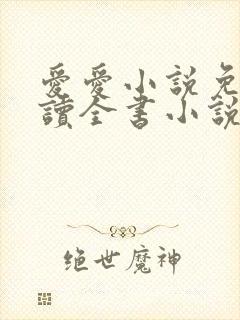 愛愛小説免
讀全書小説
绝世魔神